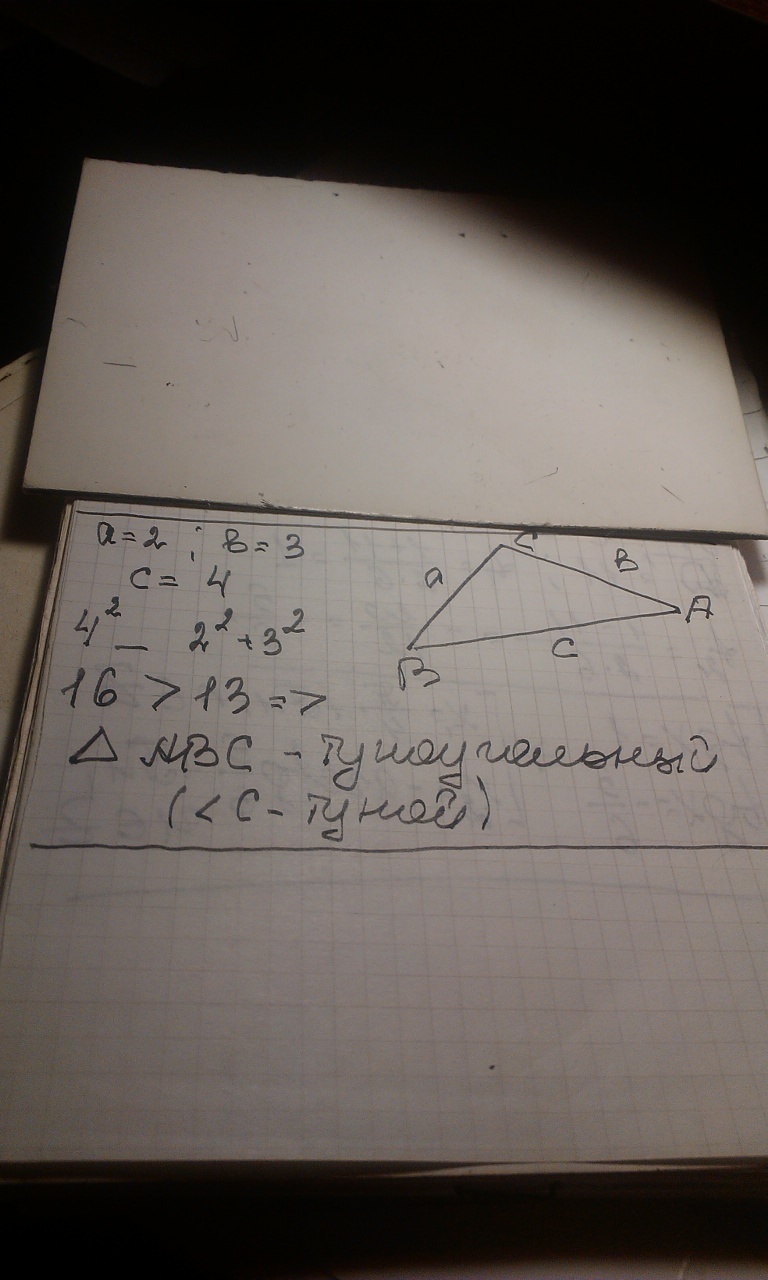 a = 2 ; в = 3
c = 4
4² _ 2² + 3²
16 > 13 =>
△ ABC - тупоугольный
(< C - тупой)
C
a
в
A
B
c